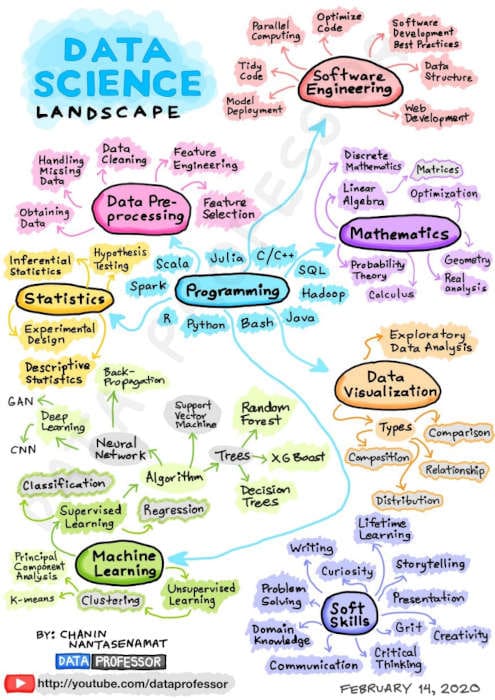 DATA
SCIENCE
LANDSCAPE
Parallel
Computing
Optimize
Code
Software
Development
Best Practices
Tidy
Code
Software
Engineering
Data
Structure
Model
Deployment
Web
Development
Handling
Missing
Data
Data
Cleaning
Feature
Engineering
Obtaining
Data
Data Pre-
processing
Feature
Selection
Discrete
Mathematics
Matrices
Linear
Algebra
Optimization
Mathematics
Probability
Theory
Calculus
Geometry
Real
analysis
Inferential
Statistics
Hypothesis
Testing
Statistics
Experimental
Design
Descriptive
Statistics
Scala
Julia
C/C++
SQL
Spark
Programming
Hadoop
R
Python
Bash
Java
Exploratory
Data Analysis
Data
Visualization
Types
Comparison
Composition
Relationship
Distribution
Back-
Propagation
GAN
Deep
Learning
CNN
Neural
Network
Support
Vector
Machine
Random
Forest
Trees
XGBoost
Decision
Trees
Algorithm
Classification
Supervised
Learning
Regression
Machine
Learning
Principal
Component
Analysis
K-means
Clustering
Unsupervised
Learning
Lifetime
Learning
Writing
Curiosity
Storytelling
Problem
Solving
Soft
Skills
Presentation
Domain
Knowledge
Grit
Creativity
Communication
Critical
Thinking
BY: CHANIN
NANTASENAMAT
DATA PROFESSOR
http://youtube.com/dataprofessor
FEBRUARY 14, 2020